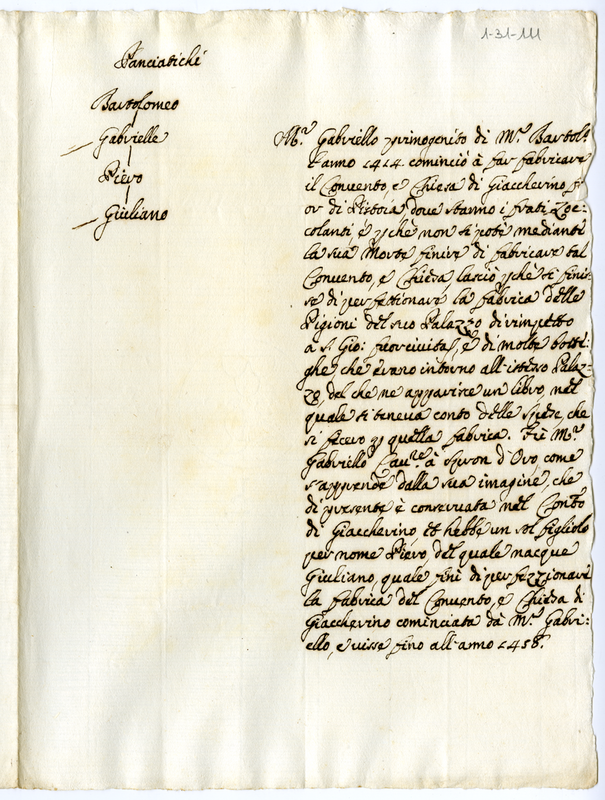 1-31-111
Panciatichi
Bartolomeo
Gabrielle
Piero
Giuliano
M.r Gabriello primogenito di M.r Bartol.o
l'anno 1414 cominciò à far fabricare
il Convento, e Chiesa di Giaccherino f-
or di Pistoia, dove stanno i frati Zoc-
colanti, è p chè non si potè mediante
la sua Morte finire di fabricare tal
Convento, e Chiesa lasciò, p che si finis-
se di perfettionare la fabrica delle
Pigioni del suo Palazzo dirimpetto
a S. Gio: fuorcivitas, è di molte botte-
ghe che erano intorno all'istesso Palaz-
zo, del che ne apparisce un libro, nel
quale si teneva conto delle Spese, che
si fecero p quella fabrica. Fù M.r
Gabriello Cau.re à Speron d'Oro, come
s'apprende dalla sua imagine, che
di presente è conservata nel Con.to
di Giaccherino, et hebbe un sol figliolo
per nome Piero, del quale nacque
Giuliano, quale finì di perfezzionare
la fabrica del Convento, e Chiesa di
Giaccherino cominciata dà M.r Gabri-
ello, e visse fino all'anno 1458.